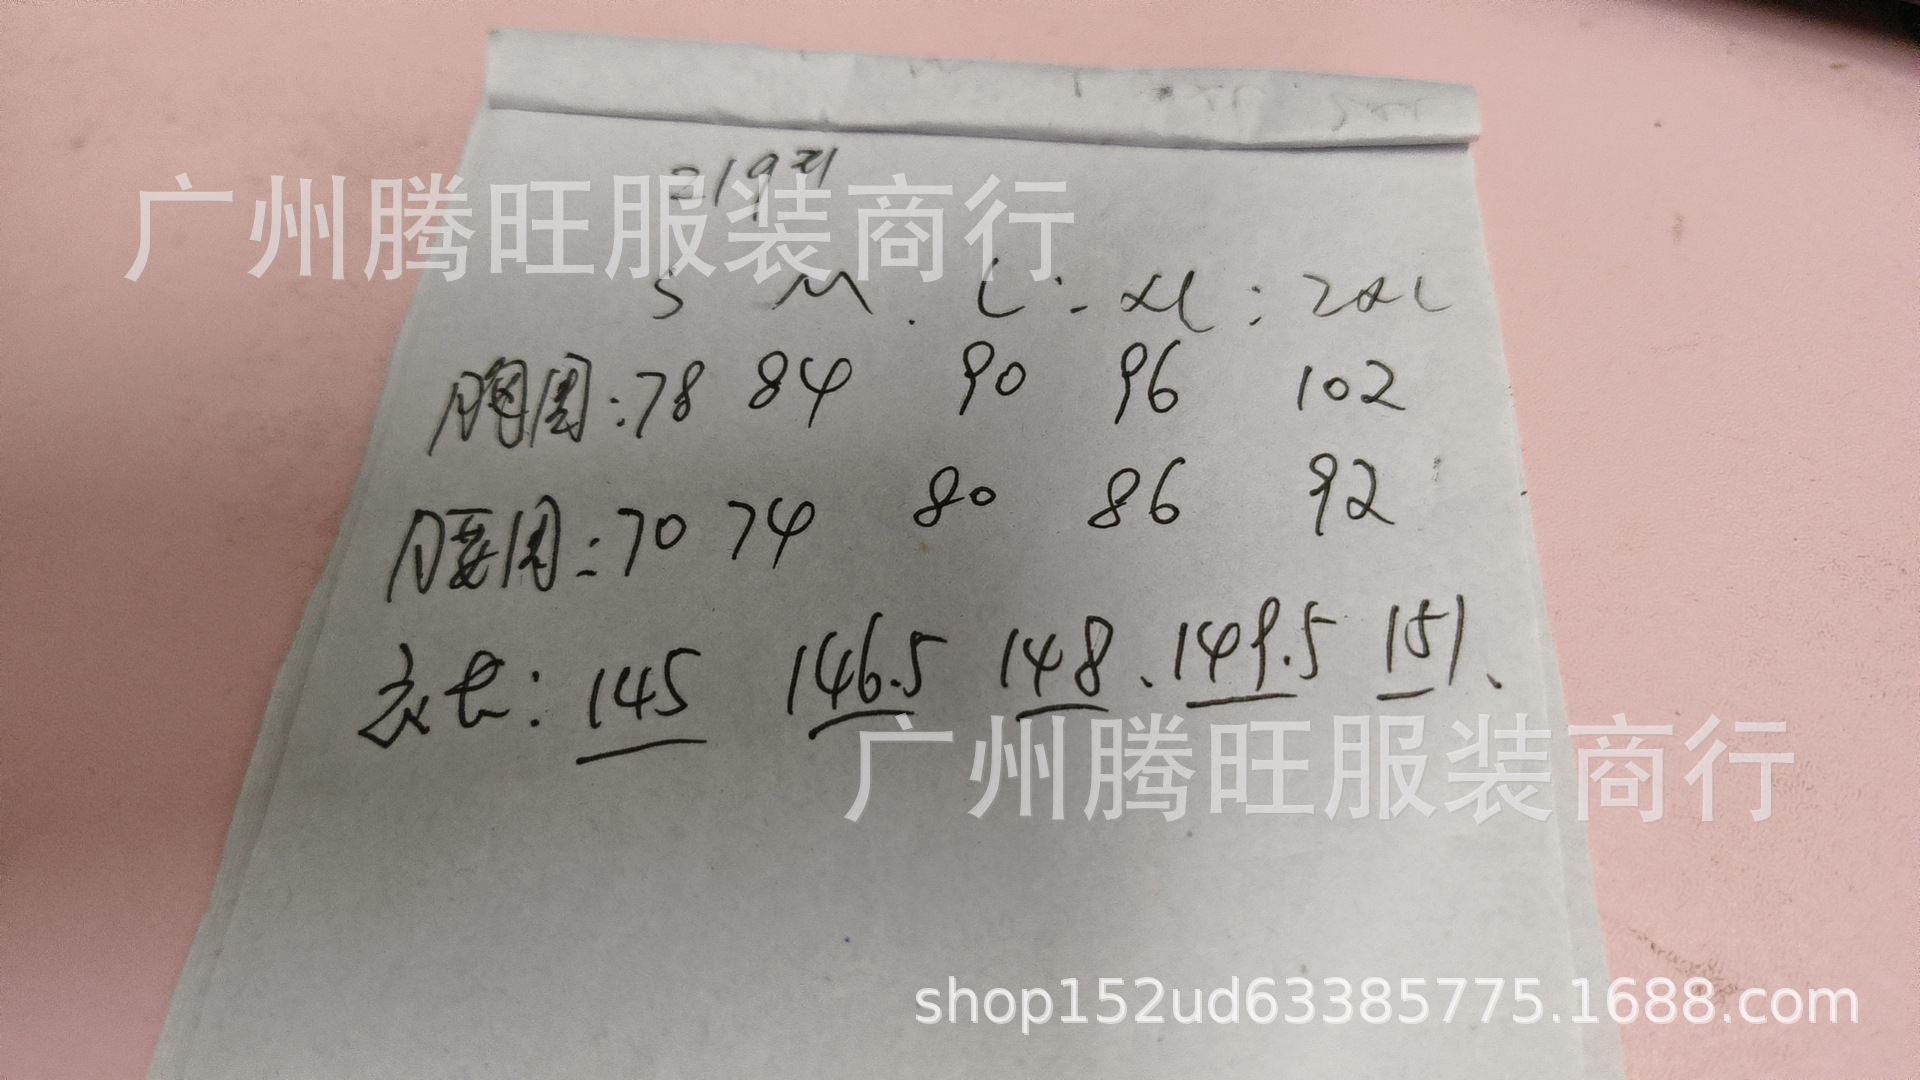 219#
广州腾旺服装商行
S M. L: XL: 2XL
胸围:78 84 90 96 102
腰围:70 74 80 86 92
衣长:145 146.5 148、149.5 151、
广州腾旺服装商行
shop152ud63385775.1688.com